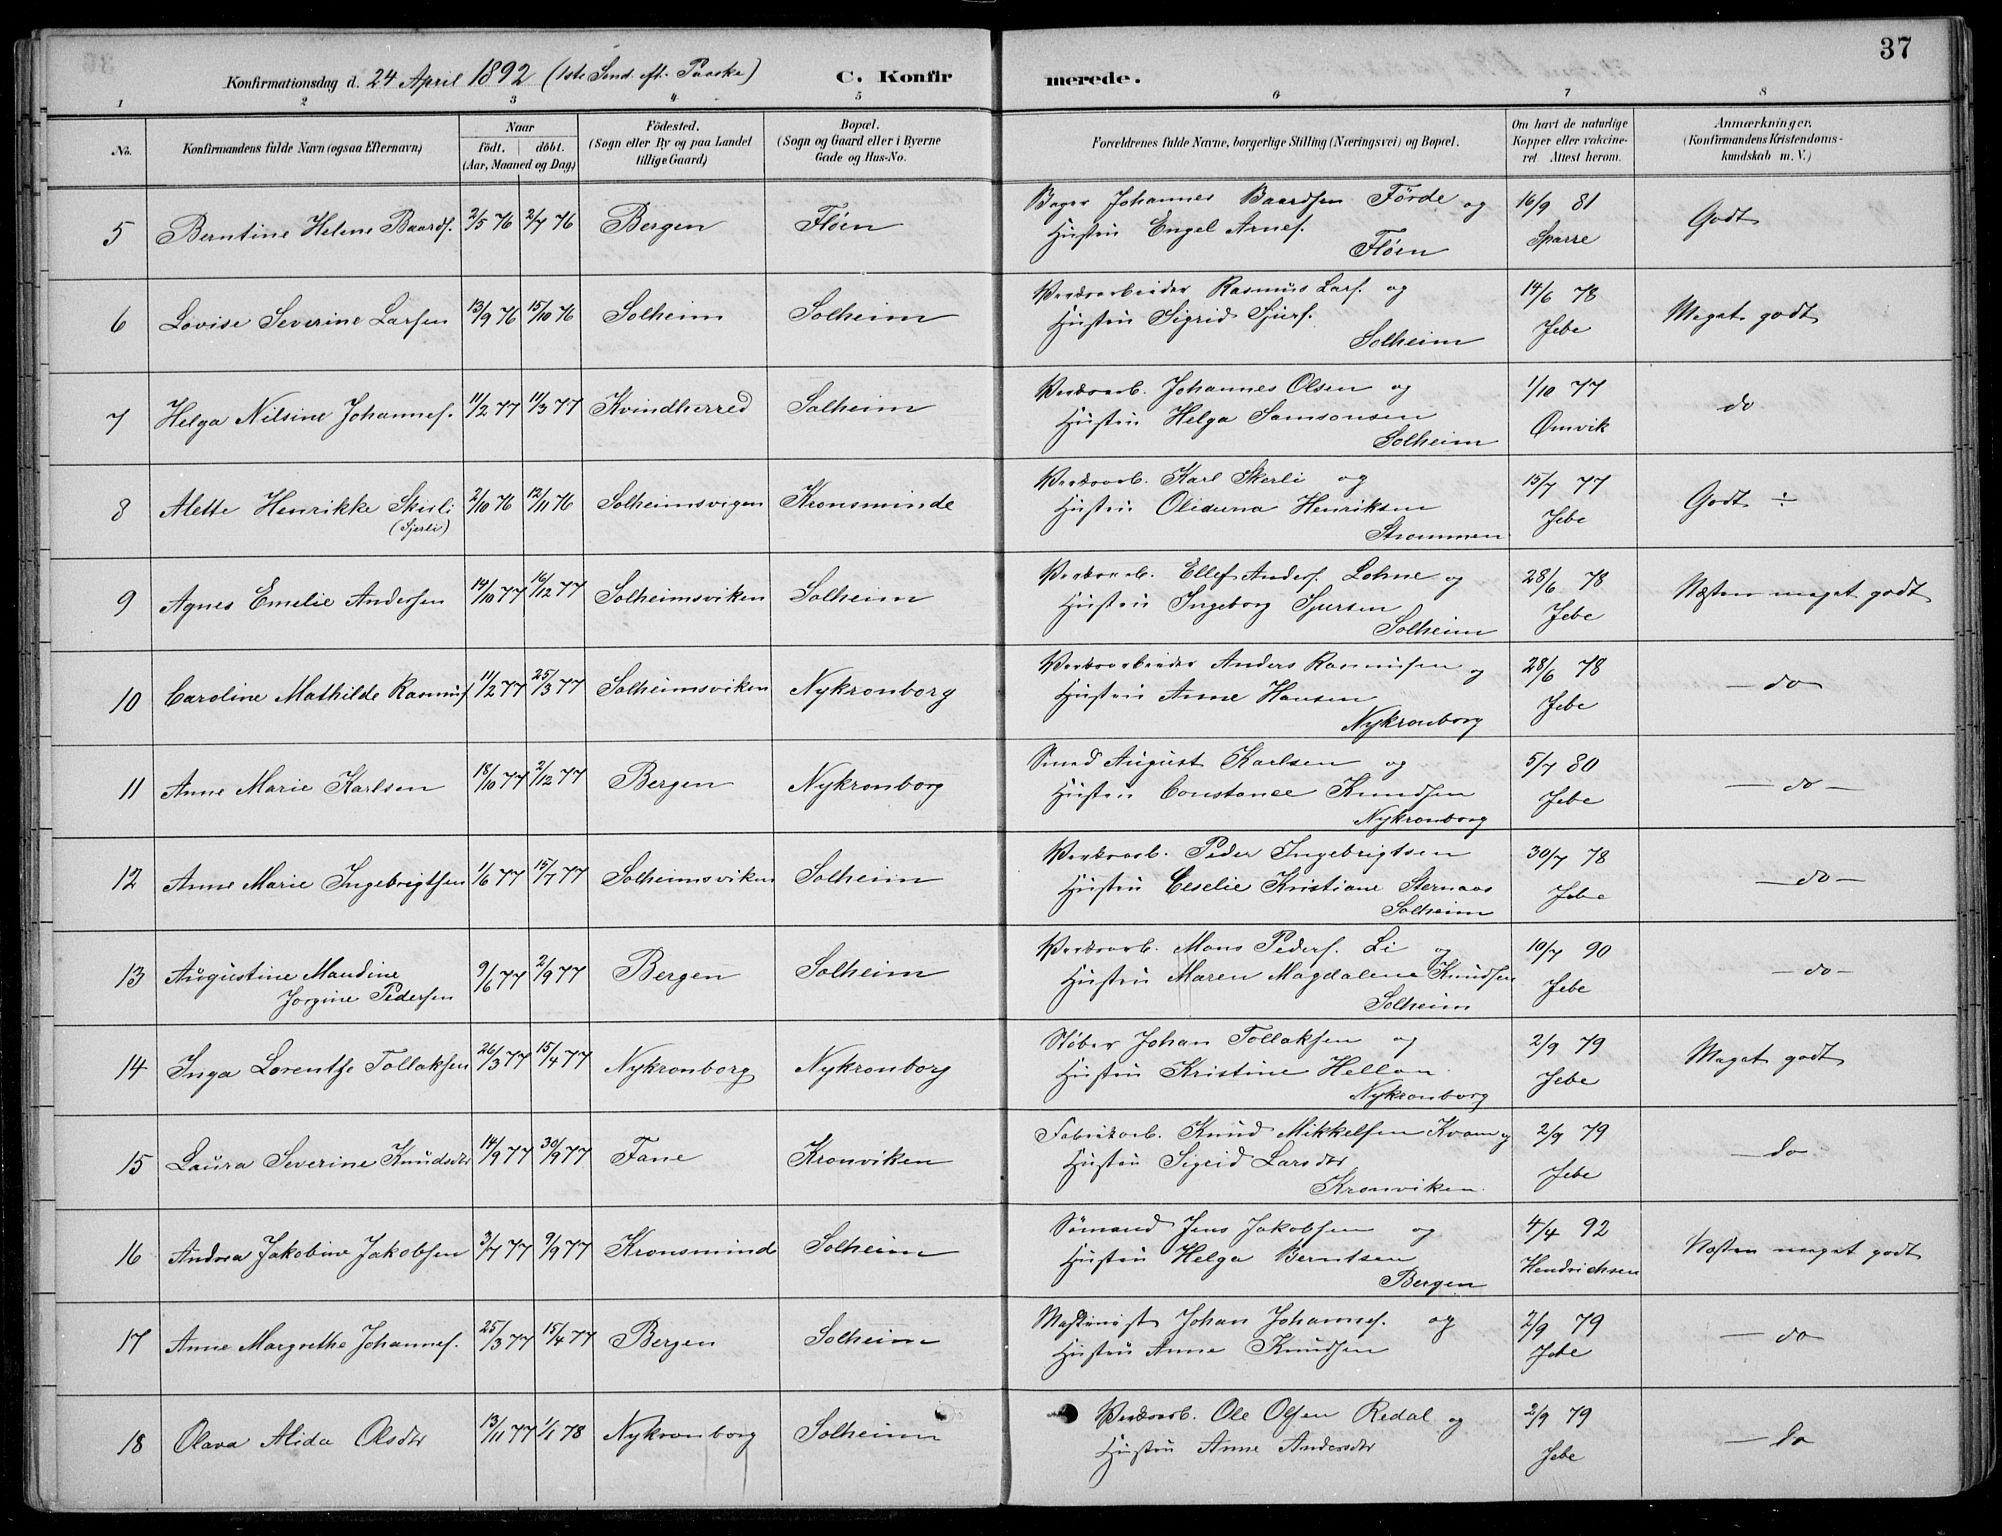 37
Konfirmationsdag d. 24 April 1892 (1ste Sönd. eft. Paaske) C. Konfir merede.
1 2 3 4 5 6 7 8
No. Konfirmandens fulde Navn (ogsaa Efternavn) Naar födt. döbt. (Aar, Maaned og Dag) Födested. (Sogn eller By og paa Landet tillige Gaard) Bopæl. (Sogn og Gaard eller i Byerne Gade og Hus-No. Forældrenes fulde Navne, borgerlige Stilling (Næringsvei) og Bopæl. Om havt de naturlige Kopper eller vakcineret. Attest herom. Anmærkninger. (Konfirmandens Kristendomskundskab m. V.)
5 Berntine Helene Baardf. 2/5 76 2/7 76 Bergen Fløen Bager Johannes Baardsen Förde og 16/9 81 Godt
Hustru Engel Arnef. Sparre
Fløen
6 Lovise Severine Larsen 13/9 76 15/10 76 Solheim Solheim Verksarbeider Rasmus Larf. og 14/6 78 Meget godt
Hustru Sigrid Sjurf. Jebe
Solheim
7 Helga Nilsine Johannef. 11/2 77 11/3 77 Kvindherred Solheim Verksarb. Johannes Olsen og 1/10 77 do
Hustru Helga Samsonsen Omvik
Solheim
8 Alette Henrikke Skerli 2/10 76 12/11 76 Solheimsvigen Kronsminde Verksarb. Karl Skerli og 15/7 77 Godt ÷
(Sjerli) Hustru Olidurna Henriksen Jebe
Strommen
9 Agnes Emelie Andersen 14/10 77 16/12 77 Solheimsviken Solheim Verksarb. Ellef Anderf. Lohne og 28/6 78 Næsten meget godt
Hustru Ingeborg Sjursen Jebe
Solheim
10 Caroline Mathilde Rasmusf 11/2 77 25/3 77 Solheimsviken Nykronborg Verksarbeider Anders Rasmussen og 28/6 78 — do
Hustru Anne Hansen Jebe
Nykronborg
11 Anne Marie Karlsen 18/10 77 2/12 77 Bergen Nykronborg Smed August Karlsen og 5/7 80 — do —
Hustru Constance Knudsen Jebe
Nykronborg
12 Anne Marie Ingebrigtsen 1/6 77 15/7 77 Solheimsviken Solheim Verksarb. Peder Ingebrigtsen 30/7 78 — do —
Hustru Ceselie Kristiane Sternaas Jebe
Solheim
13 Augustine Maudine 9/6 77 2/9 77 Bergen Solheim Verksarb. Mons Pederf. Li og 10/7 90 — do —
Jorgine Pedersen Hustru Maren Magdalene Knudsen Jebe
Solheim
14 Inga Lorentse Tollaksen 26/3 77 15/4 77 Nykronborg Nykronborg Støber Johan Tollaksen og 2/9 79 Meget godt
Hustru Kristine Hellan Jebe
Nykronborg
15 Laura Severine Knudsdtr 14/9 77 30/9 77 Fane Kronviken Fabrikarb. Knud Mikkelsen Kvam og 2/9 79 — do
Hustru Sigrid Larsdtr Jebe
Kronviken.
16 Andrea Jakobine Jakobsen 3/7 77 9/9 77 Kronsmind Solheim Sömand Jens Jakobsen og 4/4 92 Næsten meget godt
Hustru Helga Berntsen Hendrichsen
Bergen
17 Anne Margrethe Johannef. 25/3 77 15/4 77 Bergen Solheim Maskinist Johan Johannef. og 2/9 79 — do
Hustru Anne Knudsen Jebe
18 Olava Alida Olsdtr 13/11 77 1/1 78 Nykronborg Solheim Verksarb. Ole Olsen Redal og 2/9 79 — do
Hustru Anne Andersdtr Jebe